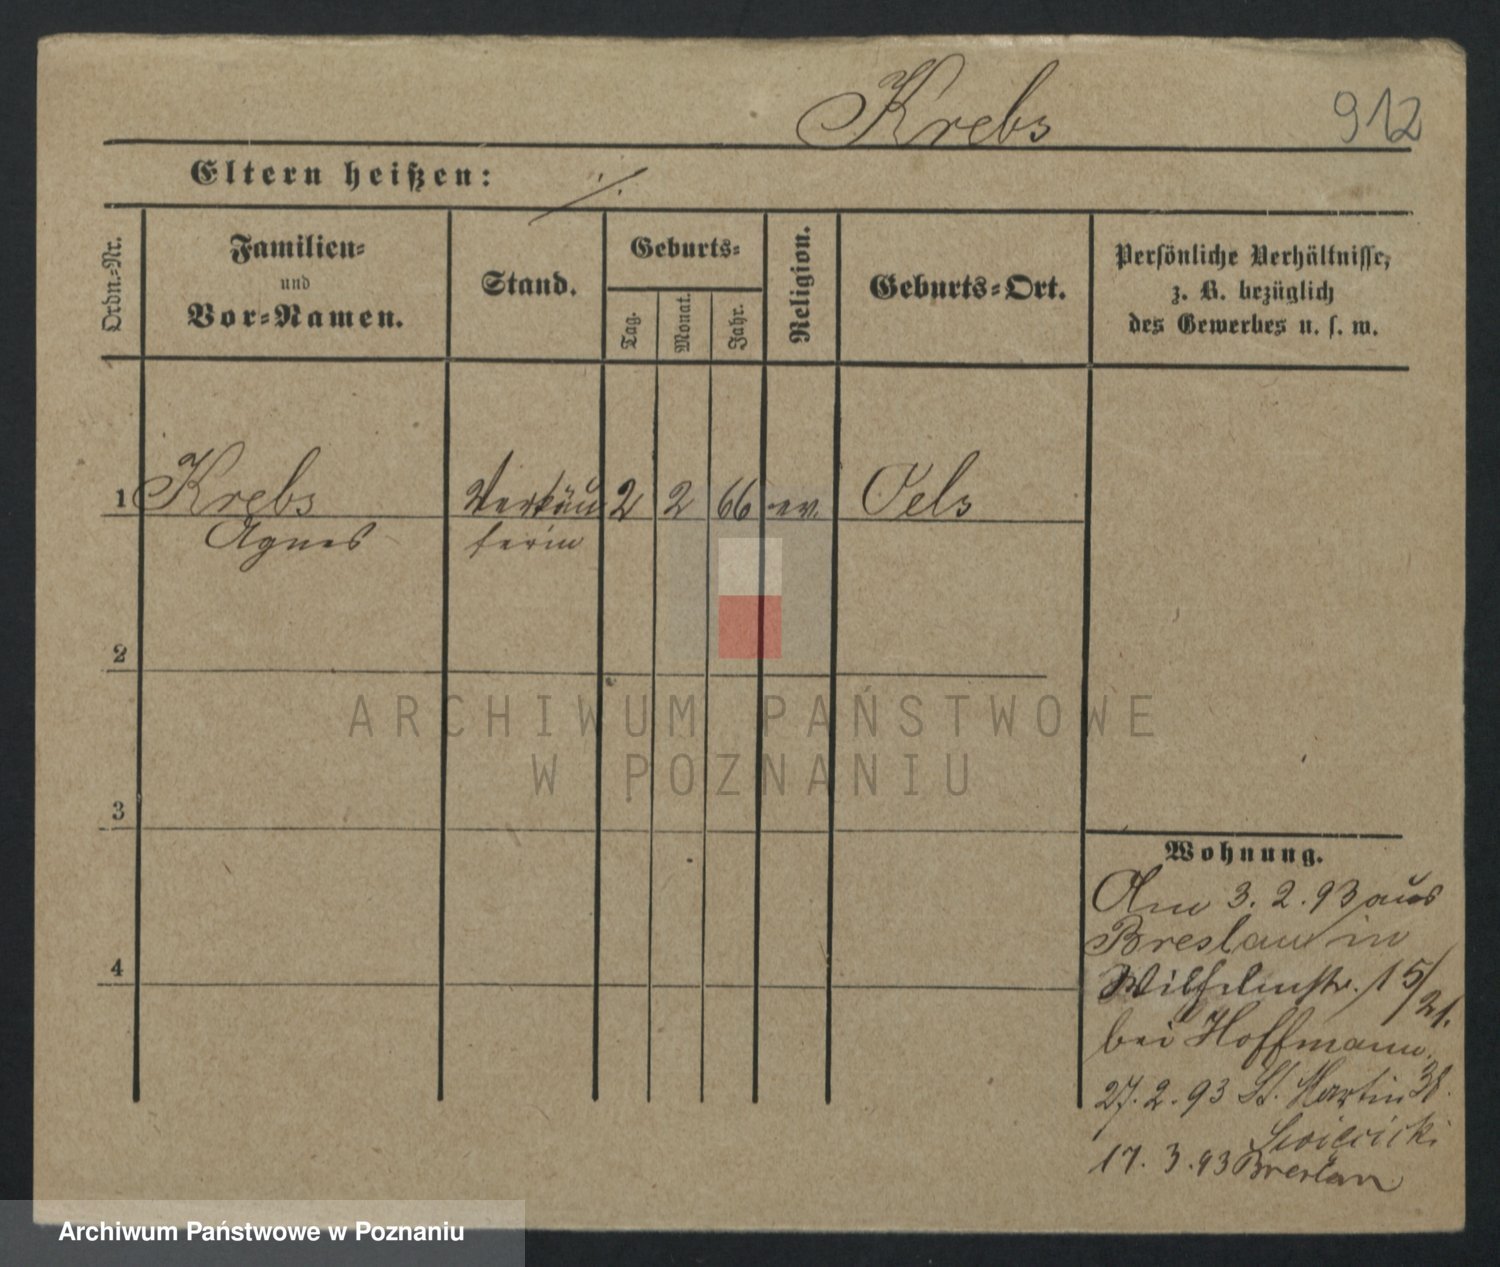 Krebs 912
Eltern heißen: ./.
Ordn.=Nr.
Familien=
und
Vor=Namen.
Stand.
Geburts=
Tag.
Monat.
Jahr.
Religion.
Geburts=Ort.
Persönliche Verhältnisse,
z. B. bezüglich
des Gewerbes u. s. w.
1 Krebs Verkäu 2 2 66 ev. Oels
Agnes ferin
2
3
4
ARCHIWUM PAŃSTWOWE
W POZNANIU
Wohnung.
Am 3. 2. 93 aus
Breslau in
Wilhelmstr. 15/
21.
bei Hoffmann.
27. 2. 93 St. Martin 38.
17. 3. 93 Breslau
Archiwum Państwowe w Poznaniu